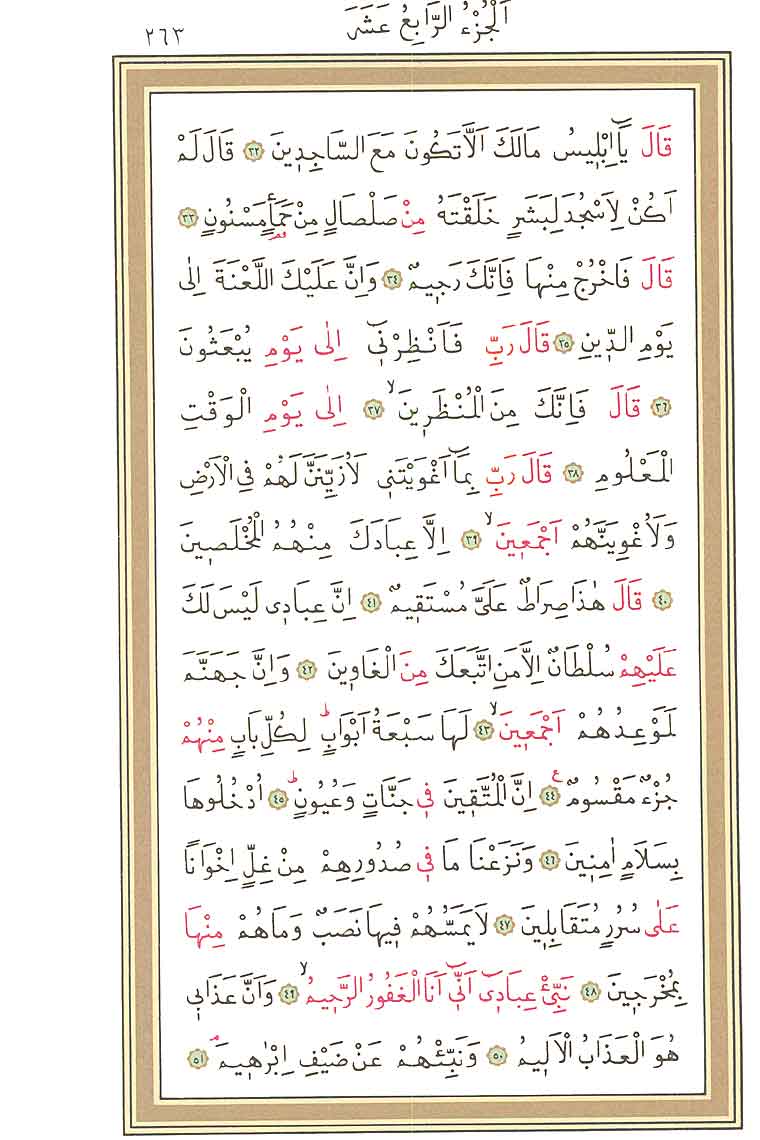 اَلْجُزْءُ الرَّابِعُ عَشَرَ
٢٦٣
قَالَ يَٓا اِبْلٖيسُ مَالَكَ اَلَّا تَكُونَ مَعَ السَّاجِدٖينَ ﴿٣٢﴾ قَالَ لَمْ
اَكُنْ لِاَسْجُدَ لِبَشَرٍ خَلَقْتَهُ مِنْ صَلْصَالٍ مِنْ حَمَأٍ مَسْنُونٍ ﴿٣٣﴾
قَالَ فَاخْرُجْ مِنْهَا فَاِنَّكَ رَجٖيمٌ ﴿٣٤﴾ وَاِنَّ عَلَيْكَ اللَّعْنَةَ اِلٰى
يَوْمِ الدّٖينِ ﴿٣٥﴾ قَالَ رَبِّ فَاَنْظِرْنٖٓى اِلٰى يَوْمِ يُبْعَثُونَ
﴿٣٦﴾ قَالَ فَاِنَّكَ مِنَ الْمُنْظَرٖينَۙ ﴿٣٧﴾ اِلٰى يَوْمِ الْوَقْتِ
الْمَعْلُومِ ﴿٣٨﴾ قَالَ رَبِّ بِمَٓا اَغْوَيْتَنٖى لَاُزَيِّنَنَّ لَهُمْ فِى الْاَرْضِ
وَلَاُغْوِيَنَّهُمْ اَجْمَعٖينَۙ ﴿٣٩﴾ اِلَّا عِبَادَكَ مِنْهُمُ الْمُخْلَصٖينَ
﴿٤٠﴾ قَالَ هٰذَا صِرَاطٌ عَلَىَّ مُسْتَقٖيمٌ ﴿٤١﴾ اِنَّ عِبَادٖى لَيْسَ لَكَ
عَلَيْهِمْ سُلْطَانٌ اِلَّا مَنِ اتَّبَعَكَ مِنَ الْغَاوٖينَ ﴿٤٢﴾ وَاِنَّ جَهَنَّمَ
لَمَوْعِدُهُمْ اَجْمَعٖينَۙ ﴿٤٣﴾ لَهَا سَبْعَةُ اَبْوَابٍؕ لِكُلِّ بَابٍ مِنْهُمْ
جُزْءٌ مَقْسُومٌࣖ ﴿٤٤﴾ اِنَّ الْمُتَّقٖينَ فٖى جَنَّاتٍ وَعُيُونٍؕ ﴿٤٥﴾ اُدْخُلُوهَا
بِسَلَامٍ اٰمِنٖينَ ﴿٤٦﴾ وَنَزَعْنَا مَا فٖى صُدُورِهِمْ مِنْ غِلٍّ اِخْوَانًا
عَلٰى سُرُرٍ مُتَقَابِلٖينَ ﴿٤٧﴾ لَا يَمَسُّهُمْ فٖيهَا نَصَبٌ وَمَا هُمْ مِنْهَا
بِمُخْرَجٖينَ ﴿٤٨﴾ نَبِّئْ عِبَادٖٓى اَنّٖٓى اَنَا الْغَفُورُ الرَّحٖيمُۙ ﴿٤٩﴾ وَاَنَّ عَذَابٖى
هُوَ الْعَذَابُ الْاَلٖيمُ ﴿٥٠﴾ وَنَبِّئْهُمْ عَنْ ضَيْفِ اِبْرٰهٖيمَۘ ﴿٥١﴾